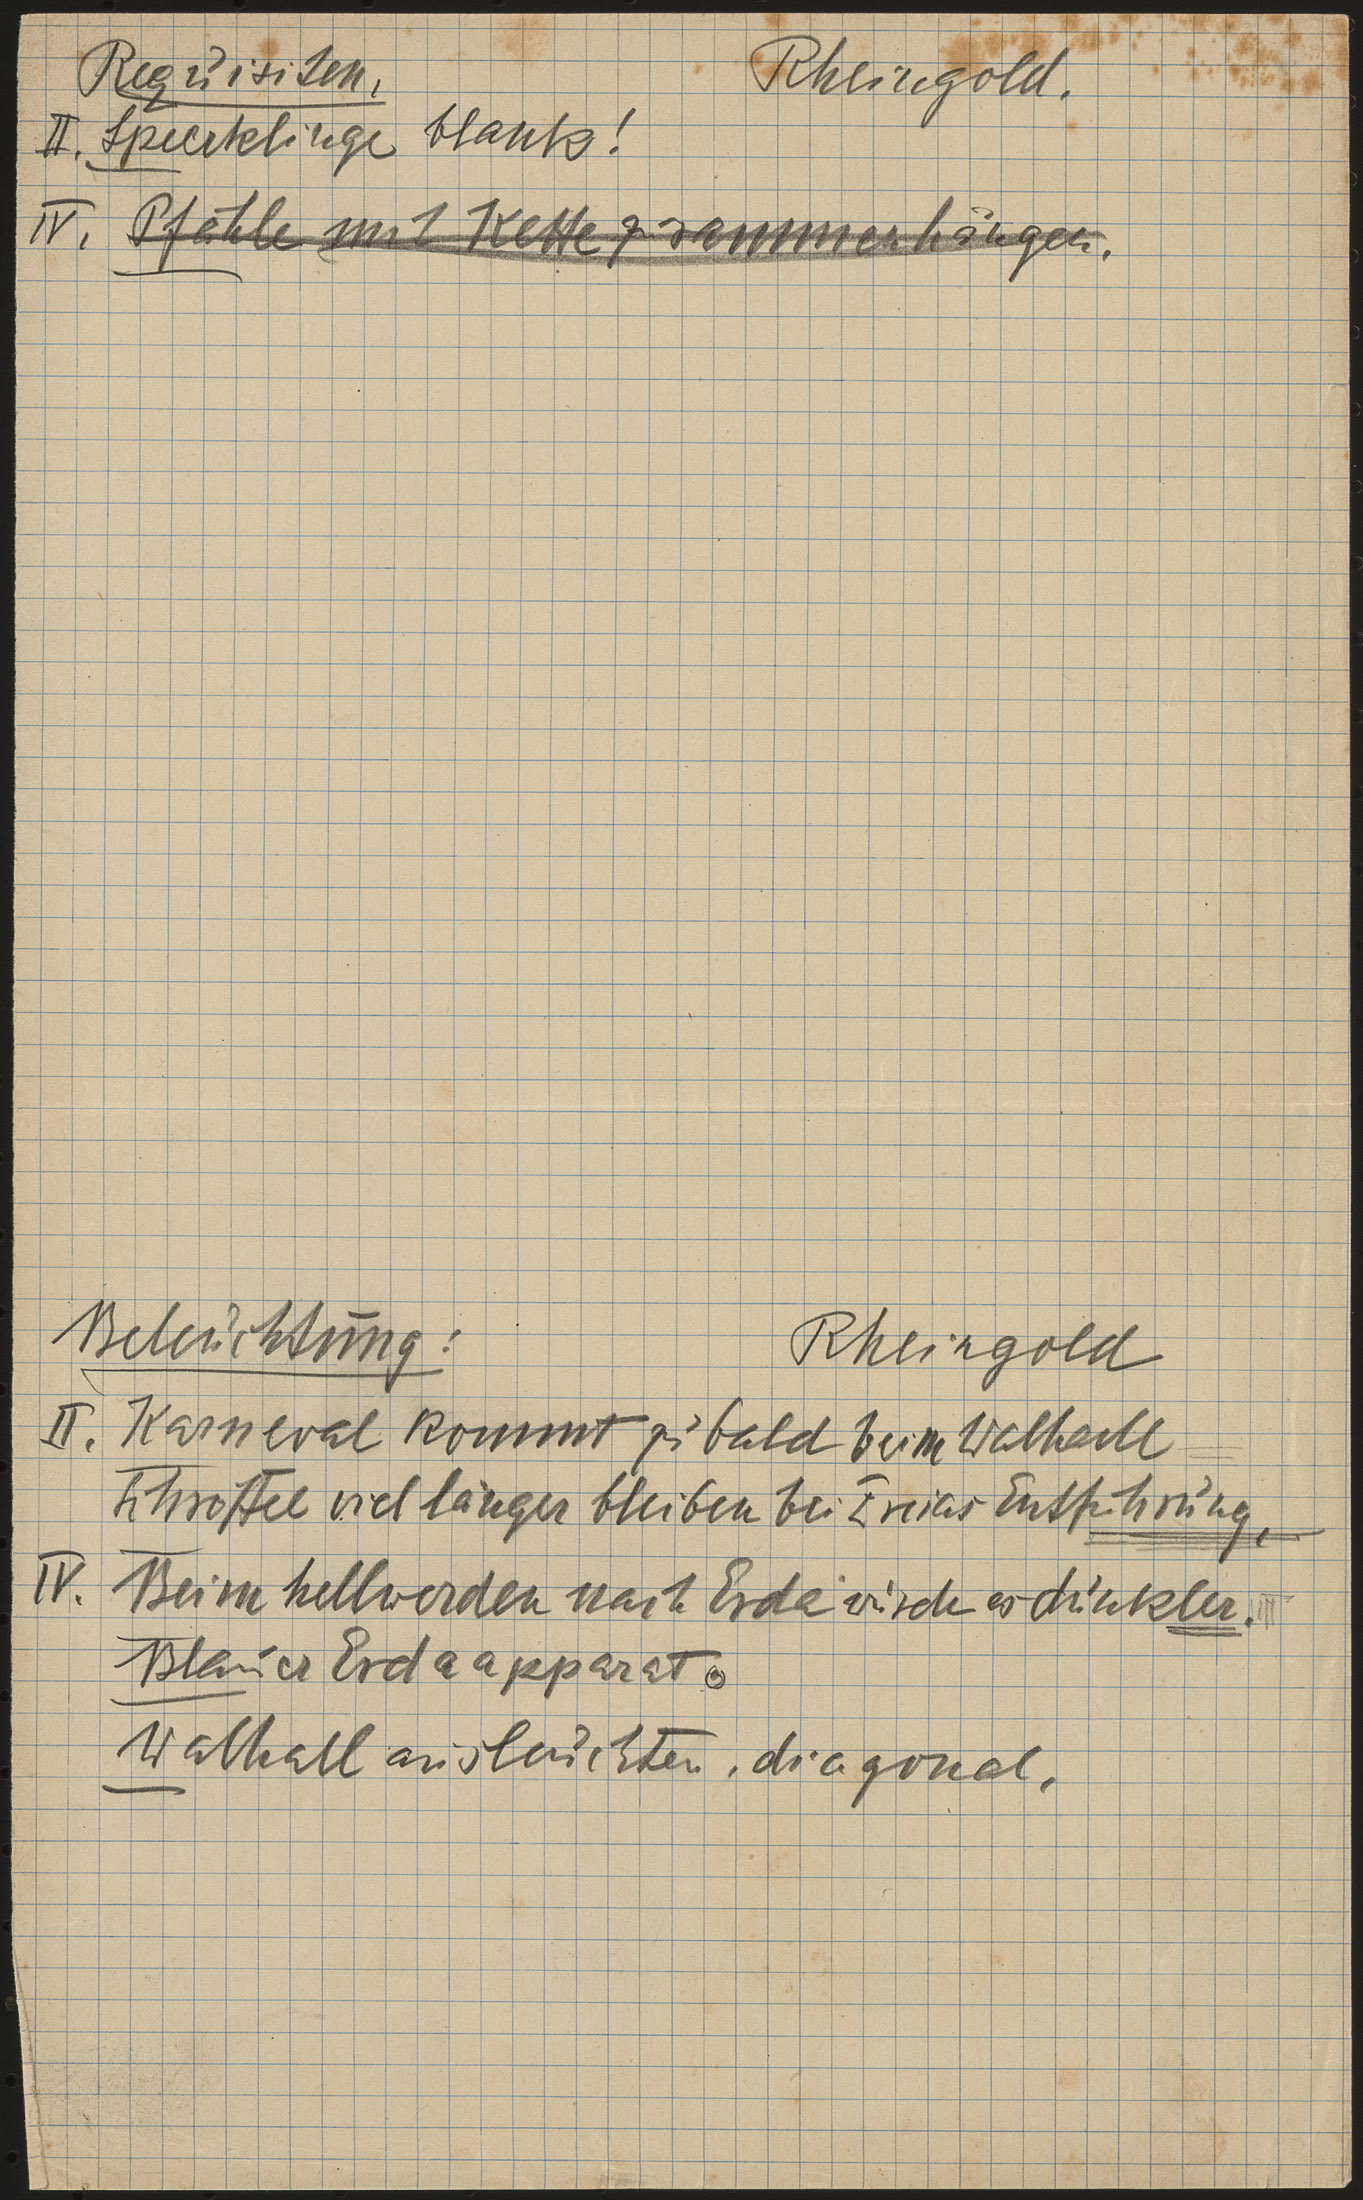 Requisiten. Rheingold.
II. Speerklinge blank!
IV. Pfähle mit Kette zusammenhängen.
Beleuchtung: Rheingold
II. Karneval kommt zu bald beim Walhall
viel länger bleiben bei Freias Entführung.
IV. Beim hellwerden nach Erda würde es dunkler.
Blauer Erdaapparat.
Walhall ausleuchten. diagonal.